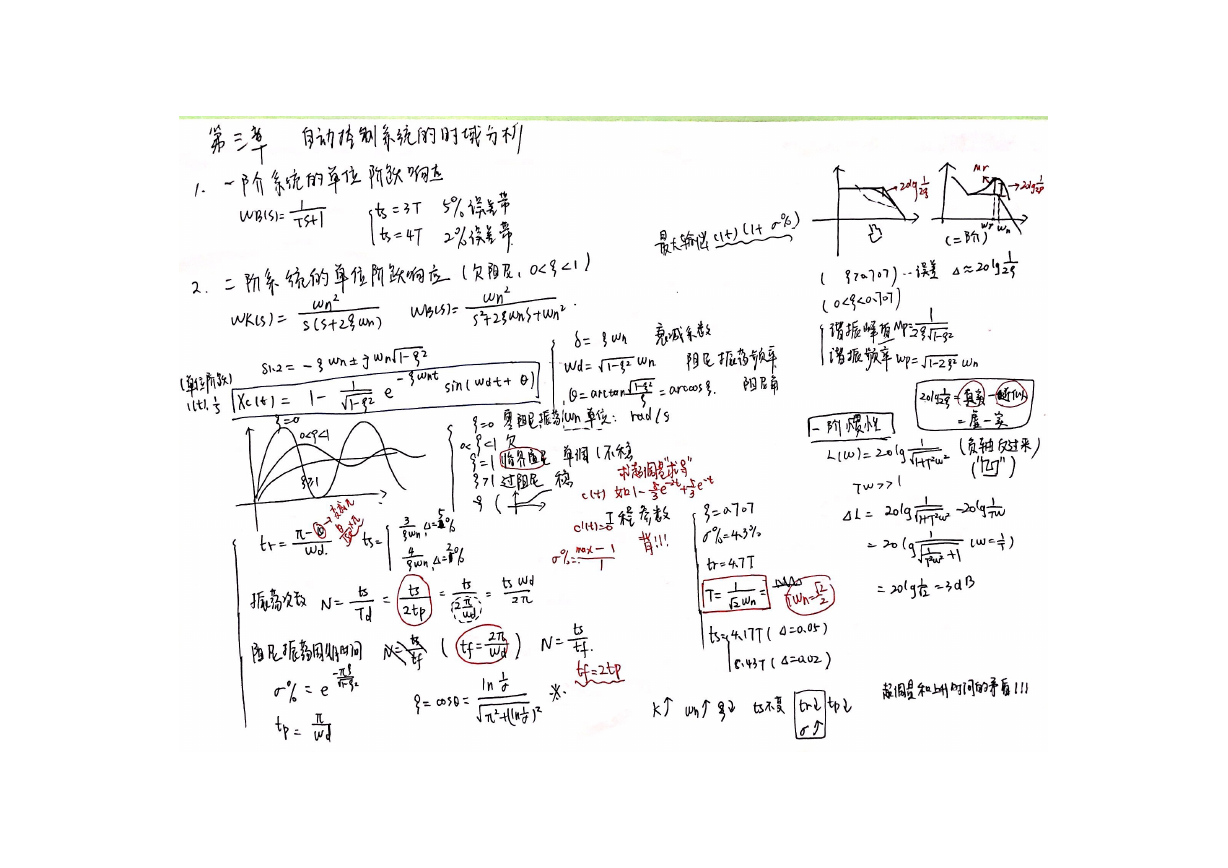 第三章 自动控制系统的时域分析
1. 一阶系统的单位阶跃响应
WB(s)= 1/(Ts+1)
ts=3T 5%误差带
ts=4T 2%误差带
2. 二阶系统的单位阶跃响应 (欠阻尼, 0<ξ<1)
WK(s)= ωn²/(s(s+2ξωn)) WB(s)= ωn²/(s²+2ξωns+ωn²)
S1.2= -ξωn±jωn√(1-ξ²)
(单位阶跃)
1(t), 1/s
Xc(t)= 1- 1/√(1-ξ²) e^(-ξωnt) sin(ωdt+θ)
δ= ξωn 衰减系数
ωd= √(1-ξ²) ωn 阻尼振荡频率
θ=arctan √(1-ξ²)/ξ = arccosξ. 阻尼角
ξ=0
0<ξ<1
ξ>1
ξ=0 零阻尼振荡 ωn 单位: rad/s
0<ξ<1 欠
ξ=1 临界阻尼 单调(不稳
ξ>1 过阻尼 稳
求超调量"求导"
c(t) 如1- 5/3 e^-2t + 5/3 e^-t
c'(t)=0
σ%= (max-1)/1
tr= (π-θ)/ωd
ts= 3/(ξωn), Δ=5%
4/(ξωn), Δ=2%
振荡次数 N= ts/Td = ts/2tp = ts/(2π/ωd) = tsωd/2π
阻尼振荡周期时间 N= ts/tf ( tf= 2π/ωd ) N= ts/tf.
tf=2tp
σ%= e^(-πξ/√(1-ξ²))
tp= π/ωd
ξ= cosθ= ln(1/σ)/√(π²+(ln 1/σ)²) ※.
工程参数
背!!!
ξ=0.707
σ%=4.3%
tr=4.7T
T= 1/(√2ωn) = Tωn= √2/2
ts= 4.17T (Δ=0.05)
8.43T (Δ=0.02)
K↑ ωn↑ ξ↓ ts不变 tr↓ tp↓
σ↑
超调量和上升时间的矛盾!!!
最大输出 c(t)(1+σ%)
20lg 1/2ξ
Mr
20lg 1/2ξ
ωr ωn
(二阶)
(ξ≥0.707)..误差 Δ≈20lg 1/2ξ
(0<ξ<0.707)
谐振峰值 Mp= 1/(2ξ√(1-ξ²))
谐振频率 ωp= √(1-2ξ²) ωn
20lg 1/2ξ = 真实 - 近似
= 虚-实
一阶惯性
L(ω)=20lg 1/√(1+T²ω²) (负轴反过来)
Tω>>1
ΔL= 20lg 1/√(1+T²ω²) -20lg 1/Tω
= 20lg 1/√(1/(T²ω²)+1) (ω= 1/T)
= 20lg 1/√2 =3dB